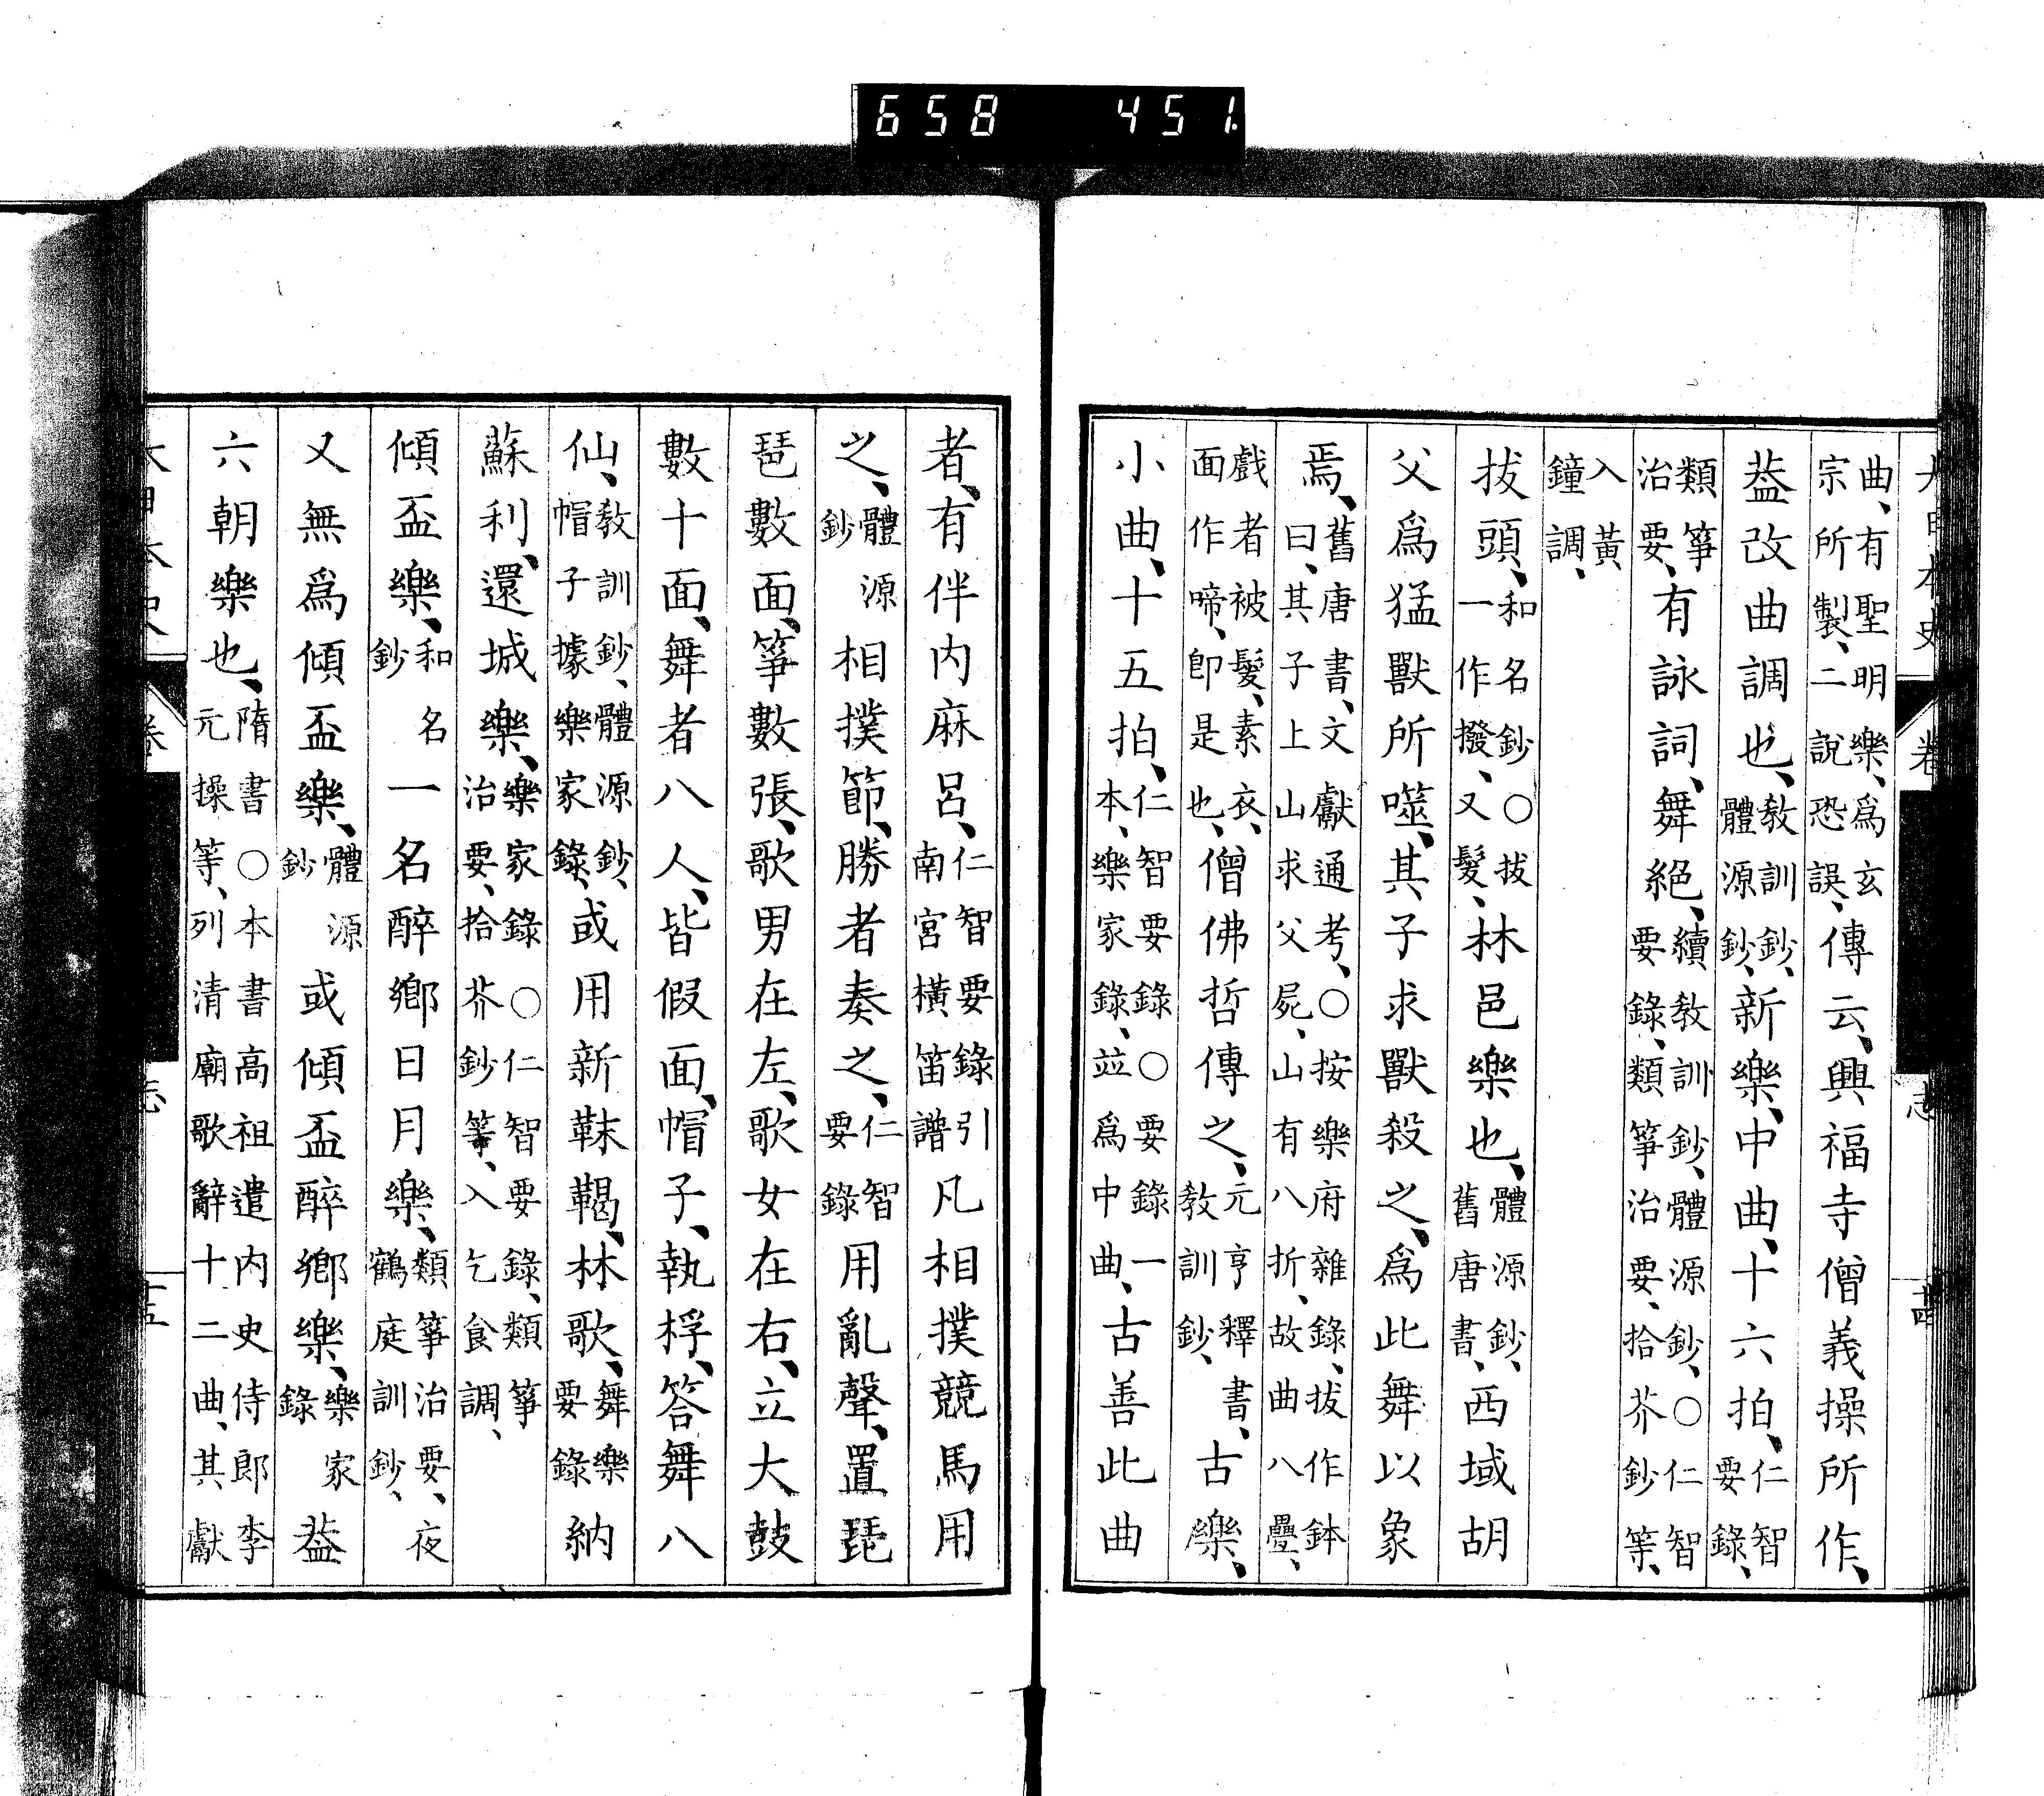 658 451
大日本史 卷 志 十四
曲、有聖明樂、爲玄宗所製、二說恐誤、傳云、興福寺僧義操所作、
葢改曲調也、教訓鈔、體源鈔、新樂、中曲、十六拍、仁智要錄、
類箏治要、有詠詞、舞絕、續教訓鈔、體源鈔、○仁智要錄、類箏治要、拾芥鈔等、
入黃鐘調、
拔頭、和名鈔○拔一作撥、又髮、林邑樂也、體源鈔、舊唐書、西域胡
父爲猛獸所噬、其子求獸殺之、爲此舞以象
焉、舊唐書、文獻通考、○按樂府雜錄、拔作鉢曰、其子上山求父屍、山有八折、故曲八疊、
戲者被髮、素衣、面作啼、卽是也、僧佛哲傳之、元亨釋書、教訓鈔、古樂、
小曲、十五拍、仁智要錄○要錄一本、樂家錄、竝爲中曲、古善此曲
者、有伴内麻呂、仁智要錄引南宮橫笛譜凡相撲競馬用
之、體源鈔相撲節、勝者奏之、仁智要錄用亂聲、置琵
琶數面、箏數張、歌男在左、歌女在右、立大鼓
數十面、舞者八人、皆假面、帽子、執桴、答舞八
仙、教訓鈔、體源鈔、帽子據樂家錄、或用新靺鞨、林歌、舞樂要錄納
蘇利、還城樂、樂家錄○仁智要錄、類箏治要、拾芥鈔等、入乞食調、
傾盃樂、和名鈔一名醉鄉日月樂、類箏治要、夜鶴庭訓鈔、
又無爲傾盃樂、體源鈔或傾盃醉鄉樂、樂家錄葢
六朝樂也、隋書○本書高祖遣内史侍郎李元操等、列清廟歌辭十二曲、其獻
大日本史 卷 志 十五